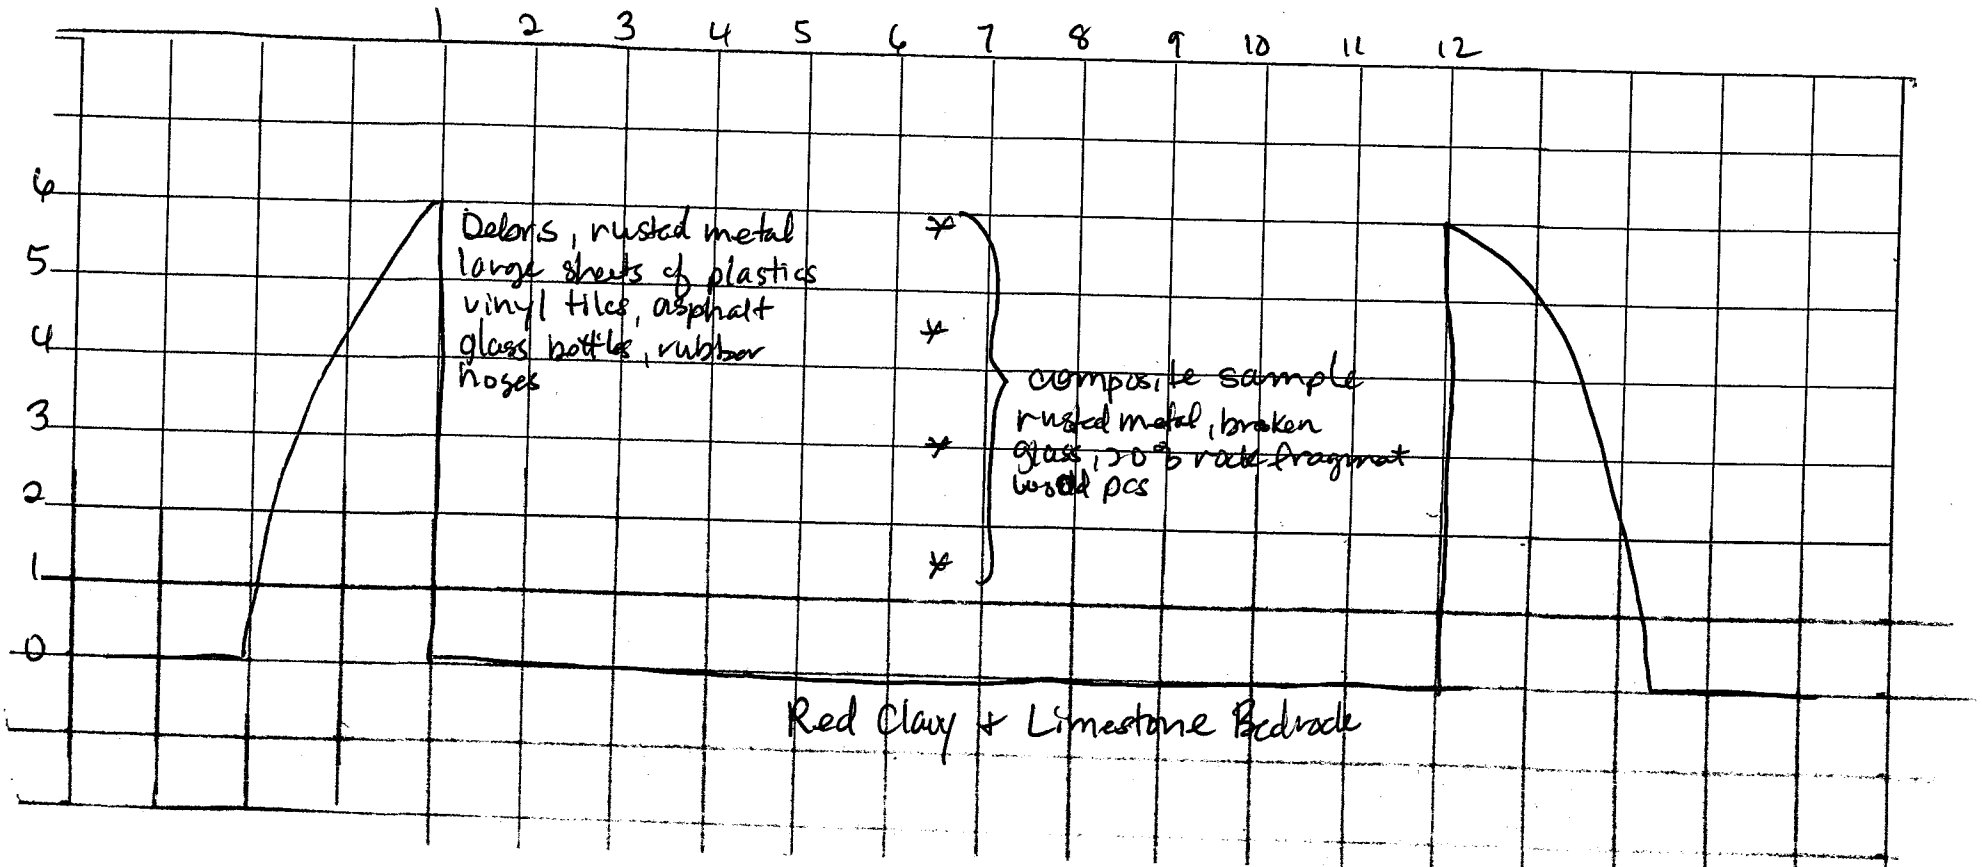 1 2 3 4 5 6 7 8 9 10 11 12
6
5
4
3
2
1
0
Debris, rusted metal
large sheets of plastics
vinyl tiles, asphalt
glass bottles, rubber
hoses
composite sample
rusted metal, broken
glass, 20% rock fragmat
wood pcs
Red Clay + Limestone Bedrock